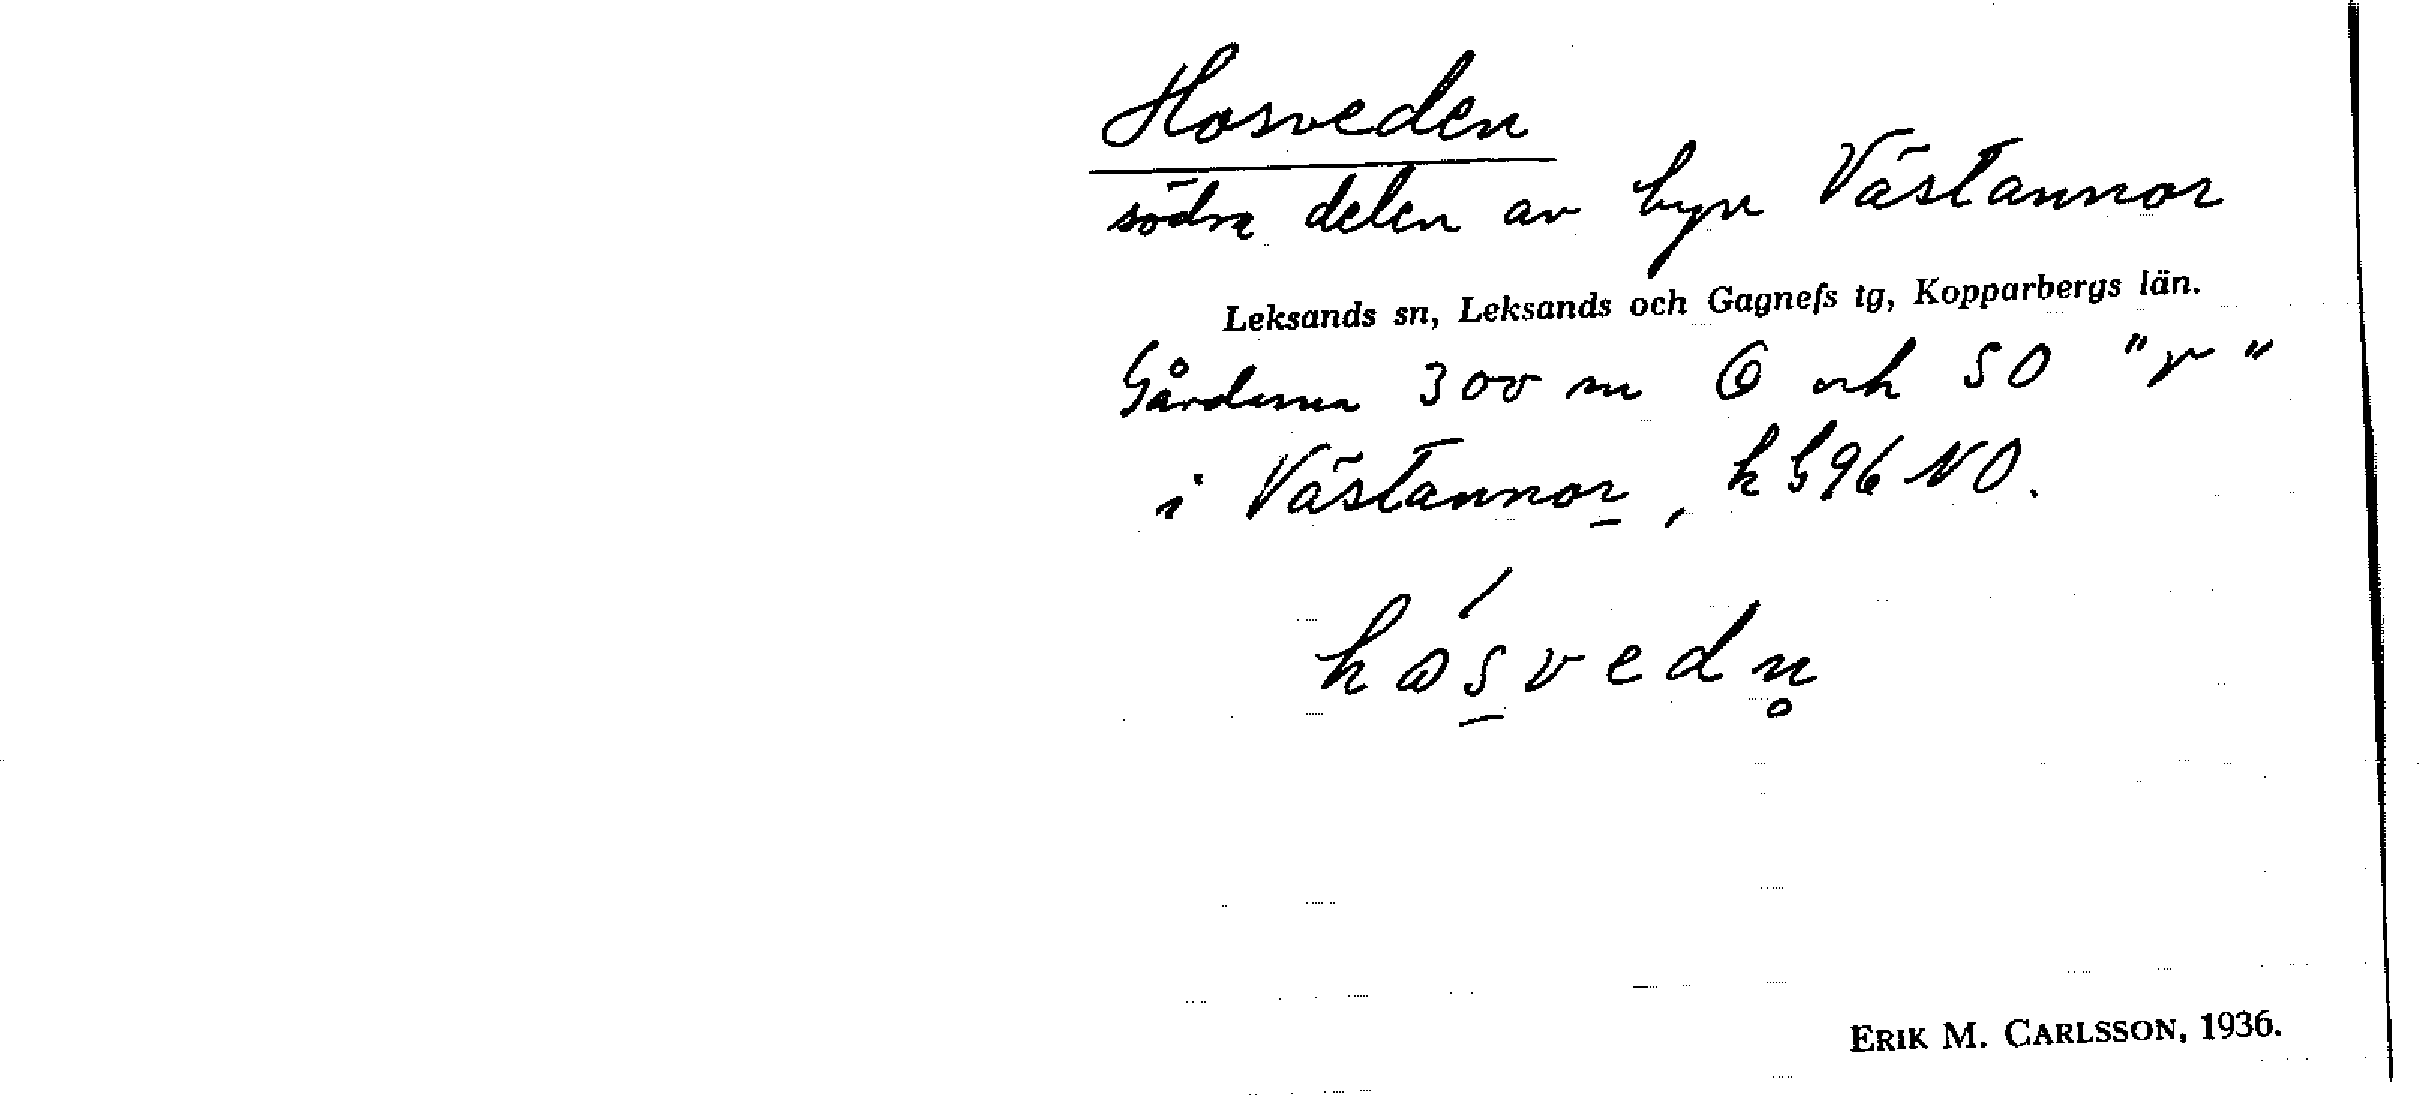 Hosveden
södra delen av byn Västannor
Leksands sn, Leksands och Gagnefs tg, Kopparbergs län.
Gårdarna 300 m O och SO "r"
i Västannor, k G96 NO.
hósvedn̥
ERIK M. CARLSSON, 1936.